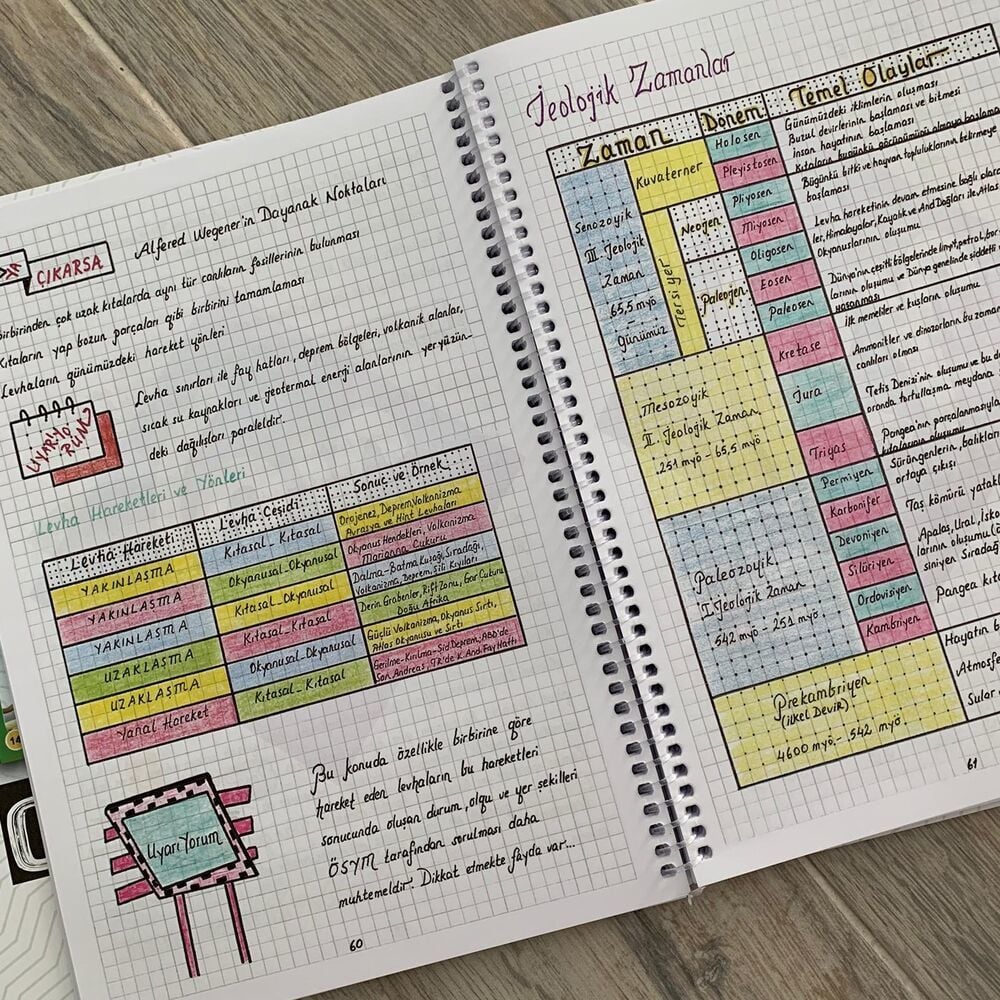 YA
ÇIKARSA
Alfered Wegener'in Dayanak Noktaları
birbirinden çok uzak kıtalarda aynı tür canlıların fosillerinin bulunması
Kıtaların yap bozun parçaları gibi birbirini tamamlaması
Levhaların günümüzdeki hareket yönleri
UYARIYO
RUM
Levha sınırları ile fay hatları, deprem bölgeleri, volkanik alanlar,
sıcak su kaynakları ve jeotermal enerji alanlarının yeryüzün_
deki dağılışları paraleldir.
Levha Hareketleri ve Yönleri
Levha Hareketi
Levha Çeşidi
Sonuç ve Örnek
YAKINLAŞMA
Kıtasal_Kıtasal
Orojenez, Deprem, Volkanizma
Avrasya ve Hint Levhaları
YAKINLAŞMA
Okyanusal_Okyanusal
Okyanus Hendekleri, Volkanizma
Marianna Çukuru
YAKINLAŞMA
Kıtasal_Okyanusal
Dalma-Batma Kuşağı, Sıradağı,
Volkanizma, Deprem, Şili Kıyıları
UZAKLAŞMA
Kıtasal_Kıtasal
Derin Grabenler, Rift Zonu, Gor Çukuru
Doğu Afrika
UZAKLAŞMA
Okyanusal_Okyanusal
Güçlü Volkanizma, Okyanus Sırtı,
Atlas Okyanusu ve Sırtı
Yanal Hareket
Kıtasal_Kıtasal
Gerilme-Kırılma-Sıd Deprem, ABD'de
San Andreas, TR'de K And. Fay Hattı
Uyarı Yorum
Bu konuda özellikle birbirine göre
hareket eden levhaların bu hareketleri
sonucunda oluşan durum, olgu ve yer şekilleri
ÖSYM tarafından sorulması daha
muhtemeldir. Dikkat etmekte fayda var...
60
Jeolojik Zamanlar
Zaman
Dönem
Temel Olaylar
Senozoyik
III. Jeolojik
Zaman
65,5 myö
Günümüz
Kuvaterner
Tersiyer
Neojen
Paleojen
Holosen
Pleyistosen
Pliyosen
Miyosen
Oligosen
Eosen
Paleosen
Günümüzdeki iklimlerin oluşması
Buzul devirlerinin başlaması ve bitmesi
İnsan hayatının başlaması
Kıtaların bugünkü görünümünü almaya başlama
Bugünkü bitki ve hayvan topluluklarının belirmeye
başlaması
Levha hareketinin devam etmesine bağlı olara
ler, Himalayalar, Kayalık ve And Dağları ile Atlas
Okyanuslarının oluşumu
Dünya'nın çeşitli bölgelerinde linyit, petrol, bor
larının oluşumu ve Dünya genelinde şiddetli
yaşanması
Mesozoyik
II. Jeolojik Zaman
251 myö - 65,5 myö
Kretase
Jura
Triyas
İlk memeliler ve kuşların oluşumu
Ammonitler ve dinozorların bu zaman
canlıları olması
Tetis Denizi'nin oluşumu ve bu d
oranda tortullaşma meydana
Pangea'nın parçalanmasıyla
kıtalarının oluşumu
Paleozoyik
I. Jeolojik Zaman
542 myö - 251 myö
Permiyen
Karbonifer
Devoniyen
Silüriyen
Ordovisiyen
Kambriyen
Sürüngenlerin, balıkların
ortaya çıkışı
Taş kömürü yatakl
Apalaş, Ural, İsko
larının oluşumu
siniyen Sıradağ
Pangea kıt
Prekambriyen
(ilkel Devir)
4600 myö - 542 myö
Hayatın b
Atmosfe
Sular
61